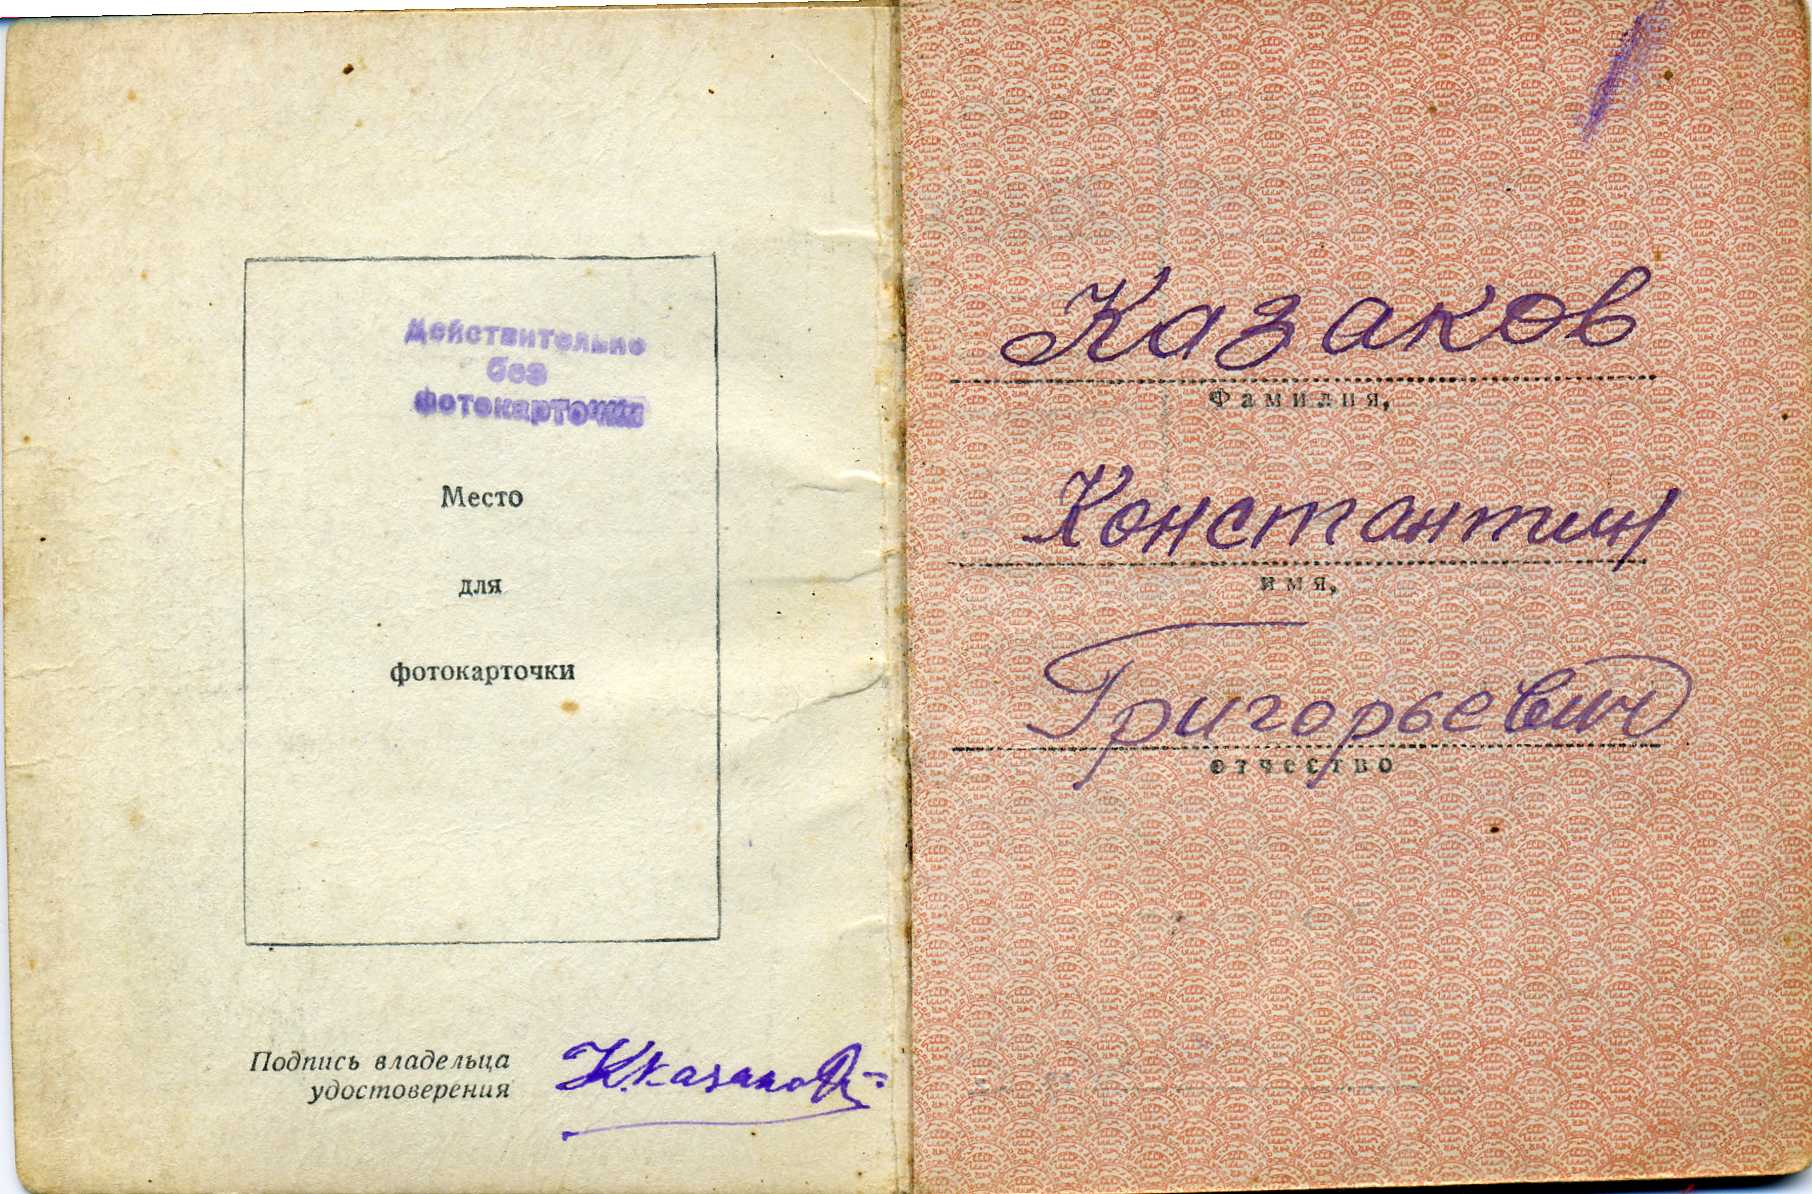 Действительно
без
фотокарточки
Место
для
фотокарточки
Подпись владельца
удостоверения
К.Казаков
Казаков
Фамилия,
Константин
имя,
Григорьевич
отчество